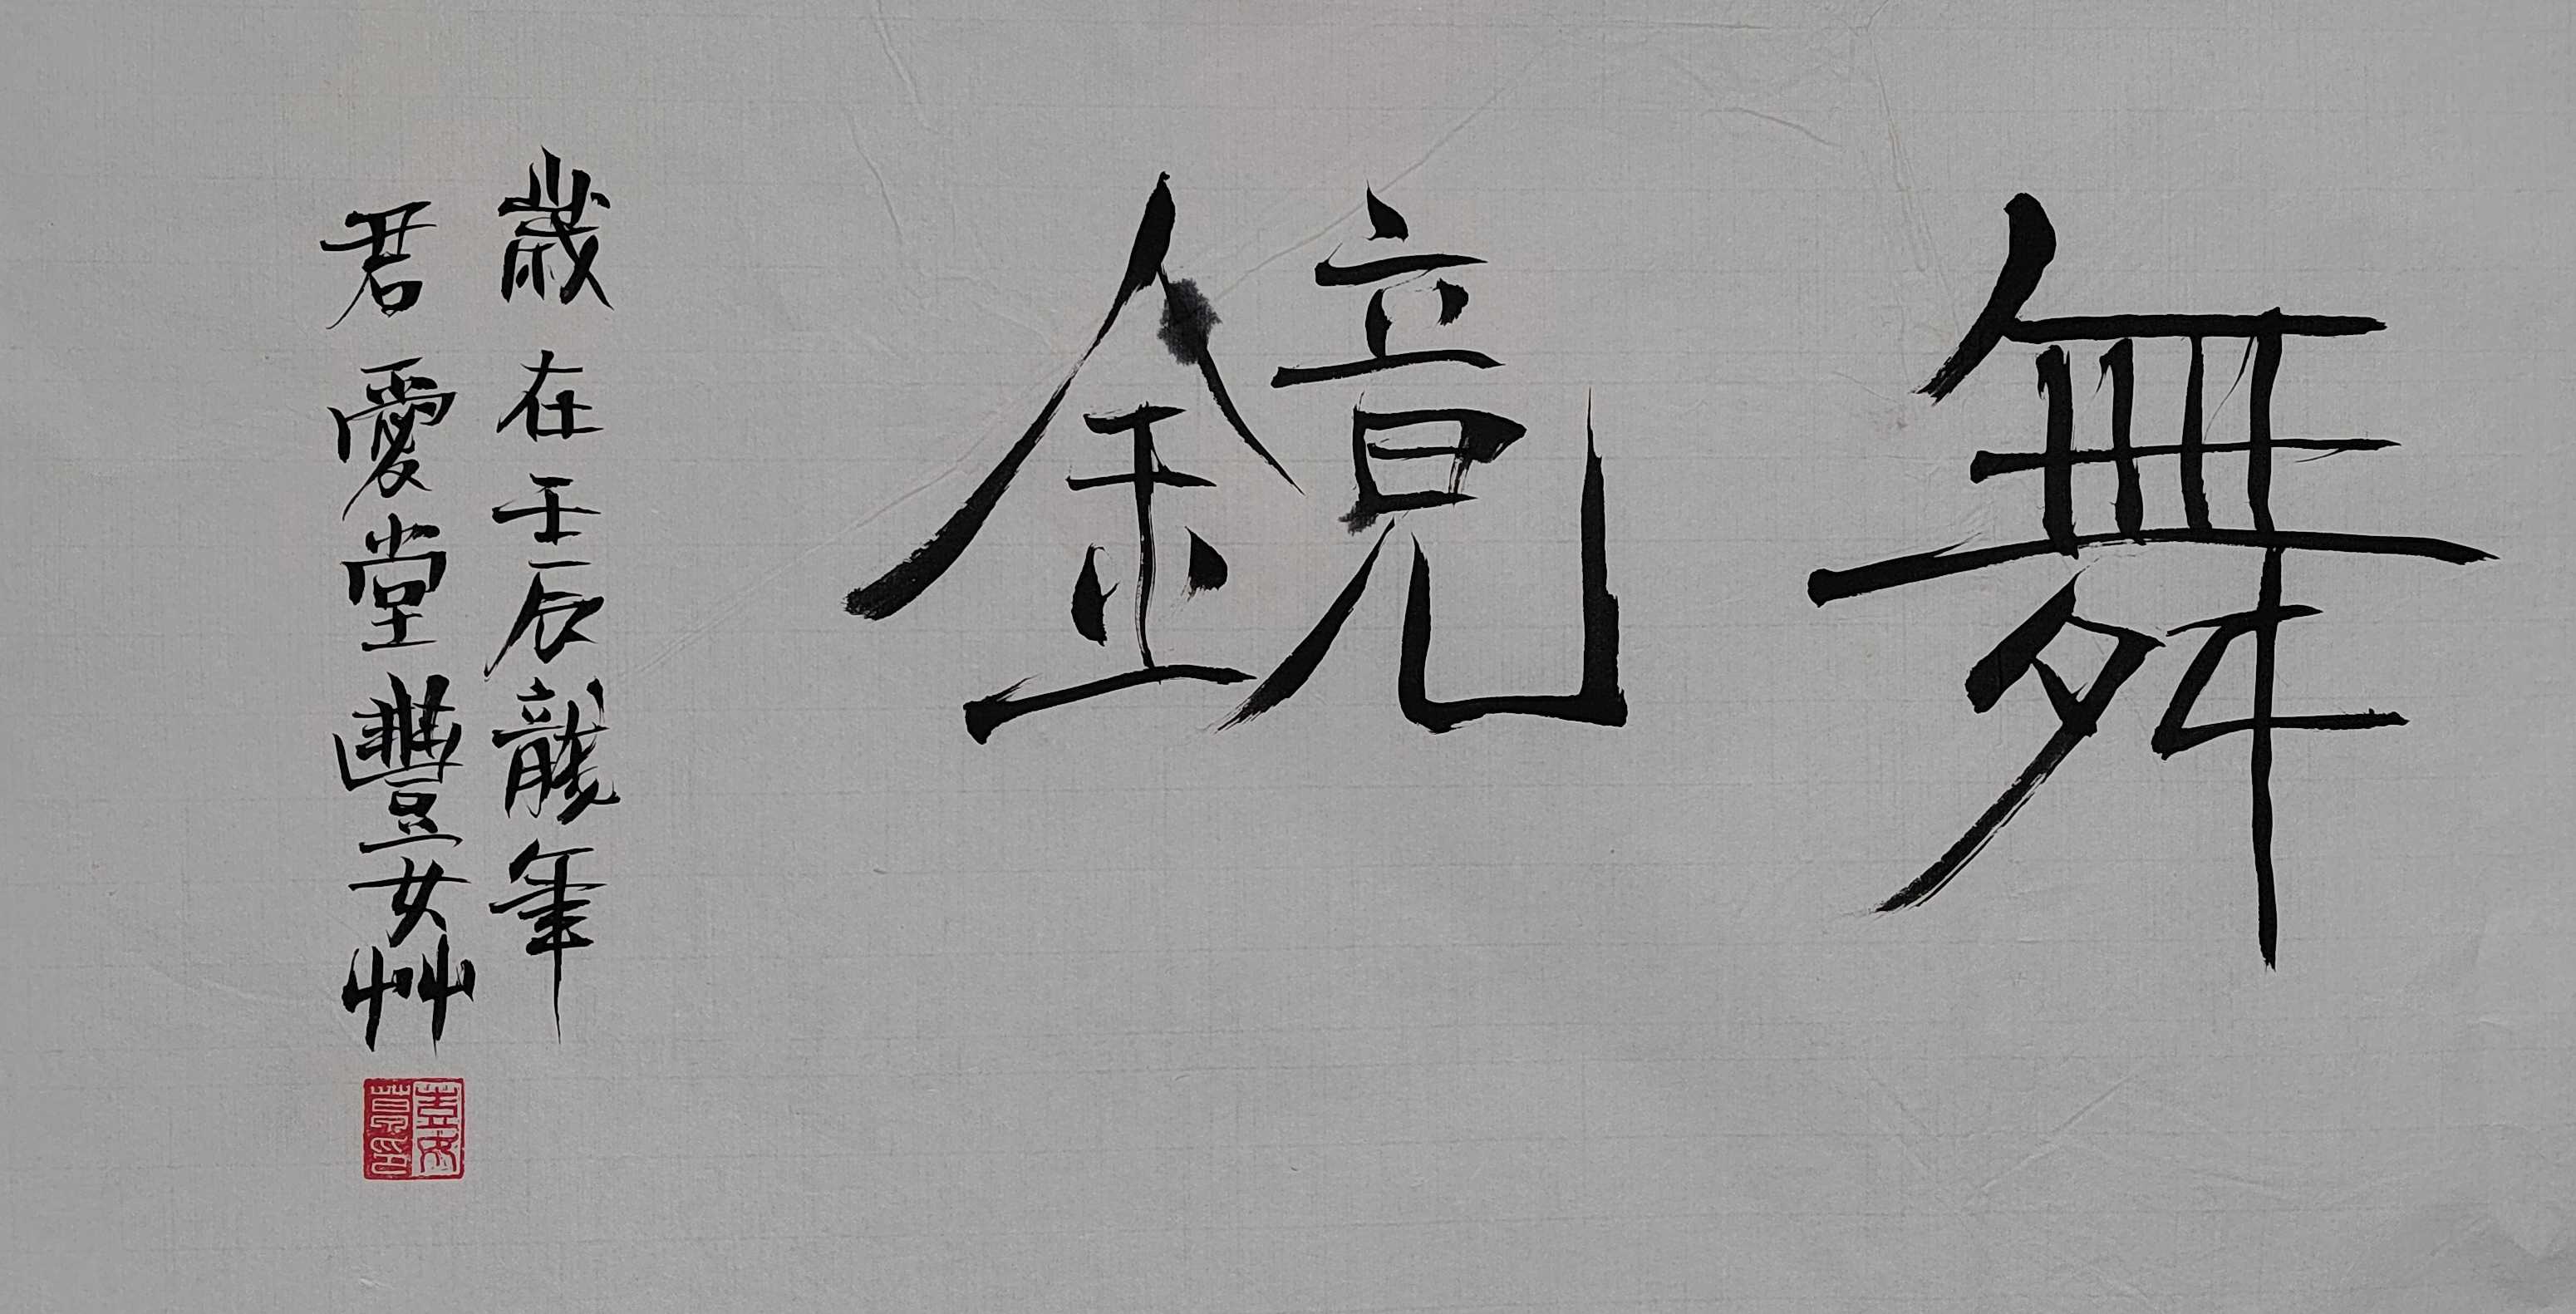 舞鏡
歲在壬辰龍年
君愛堂豐女艸